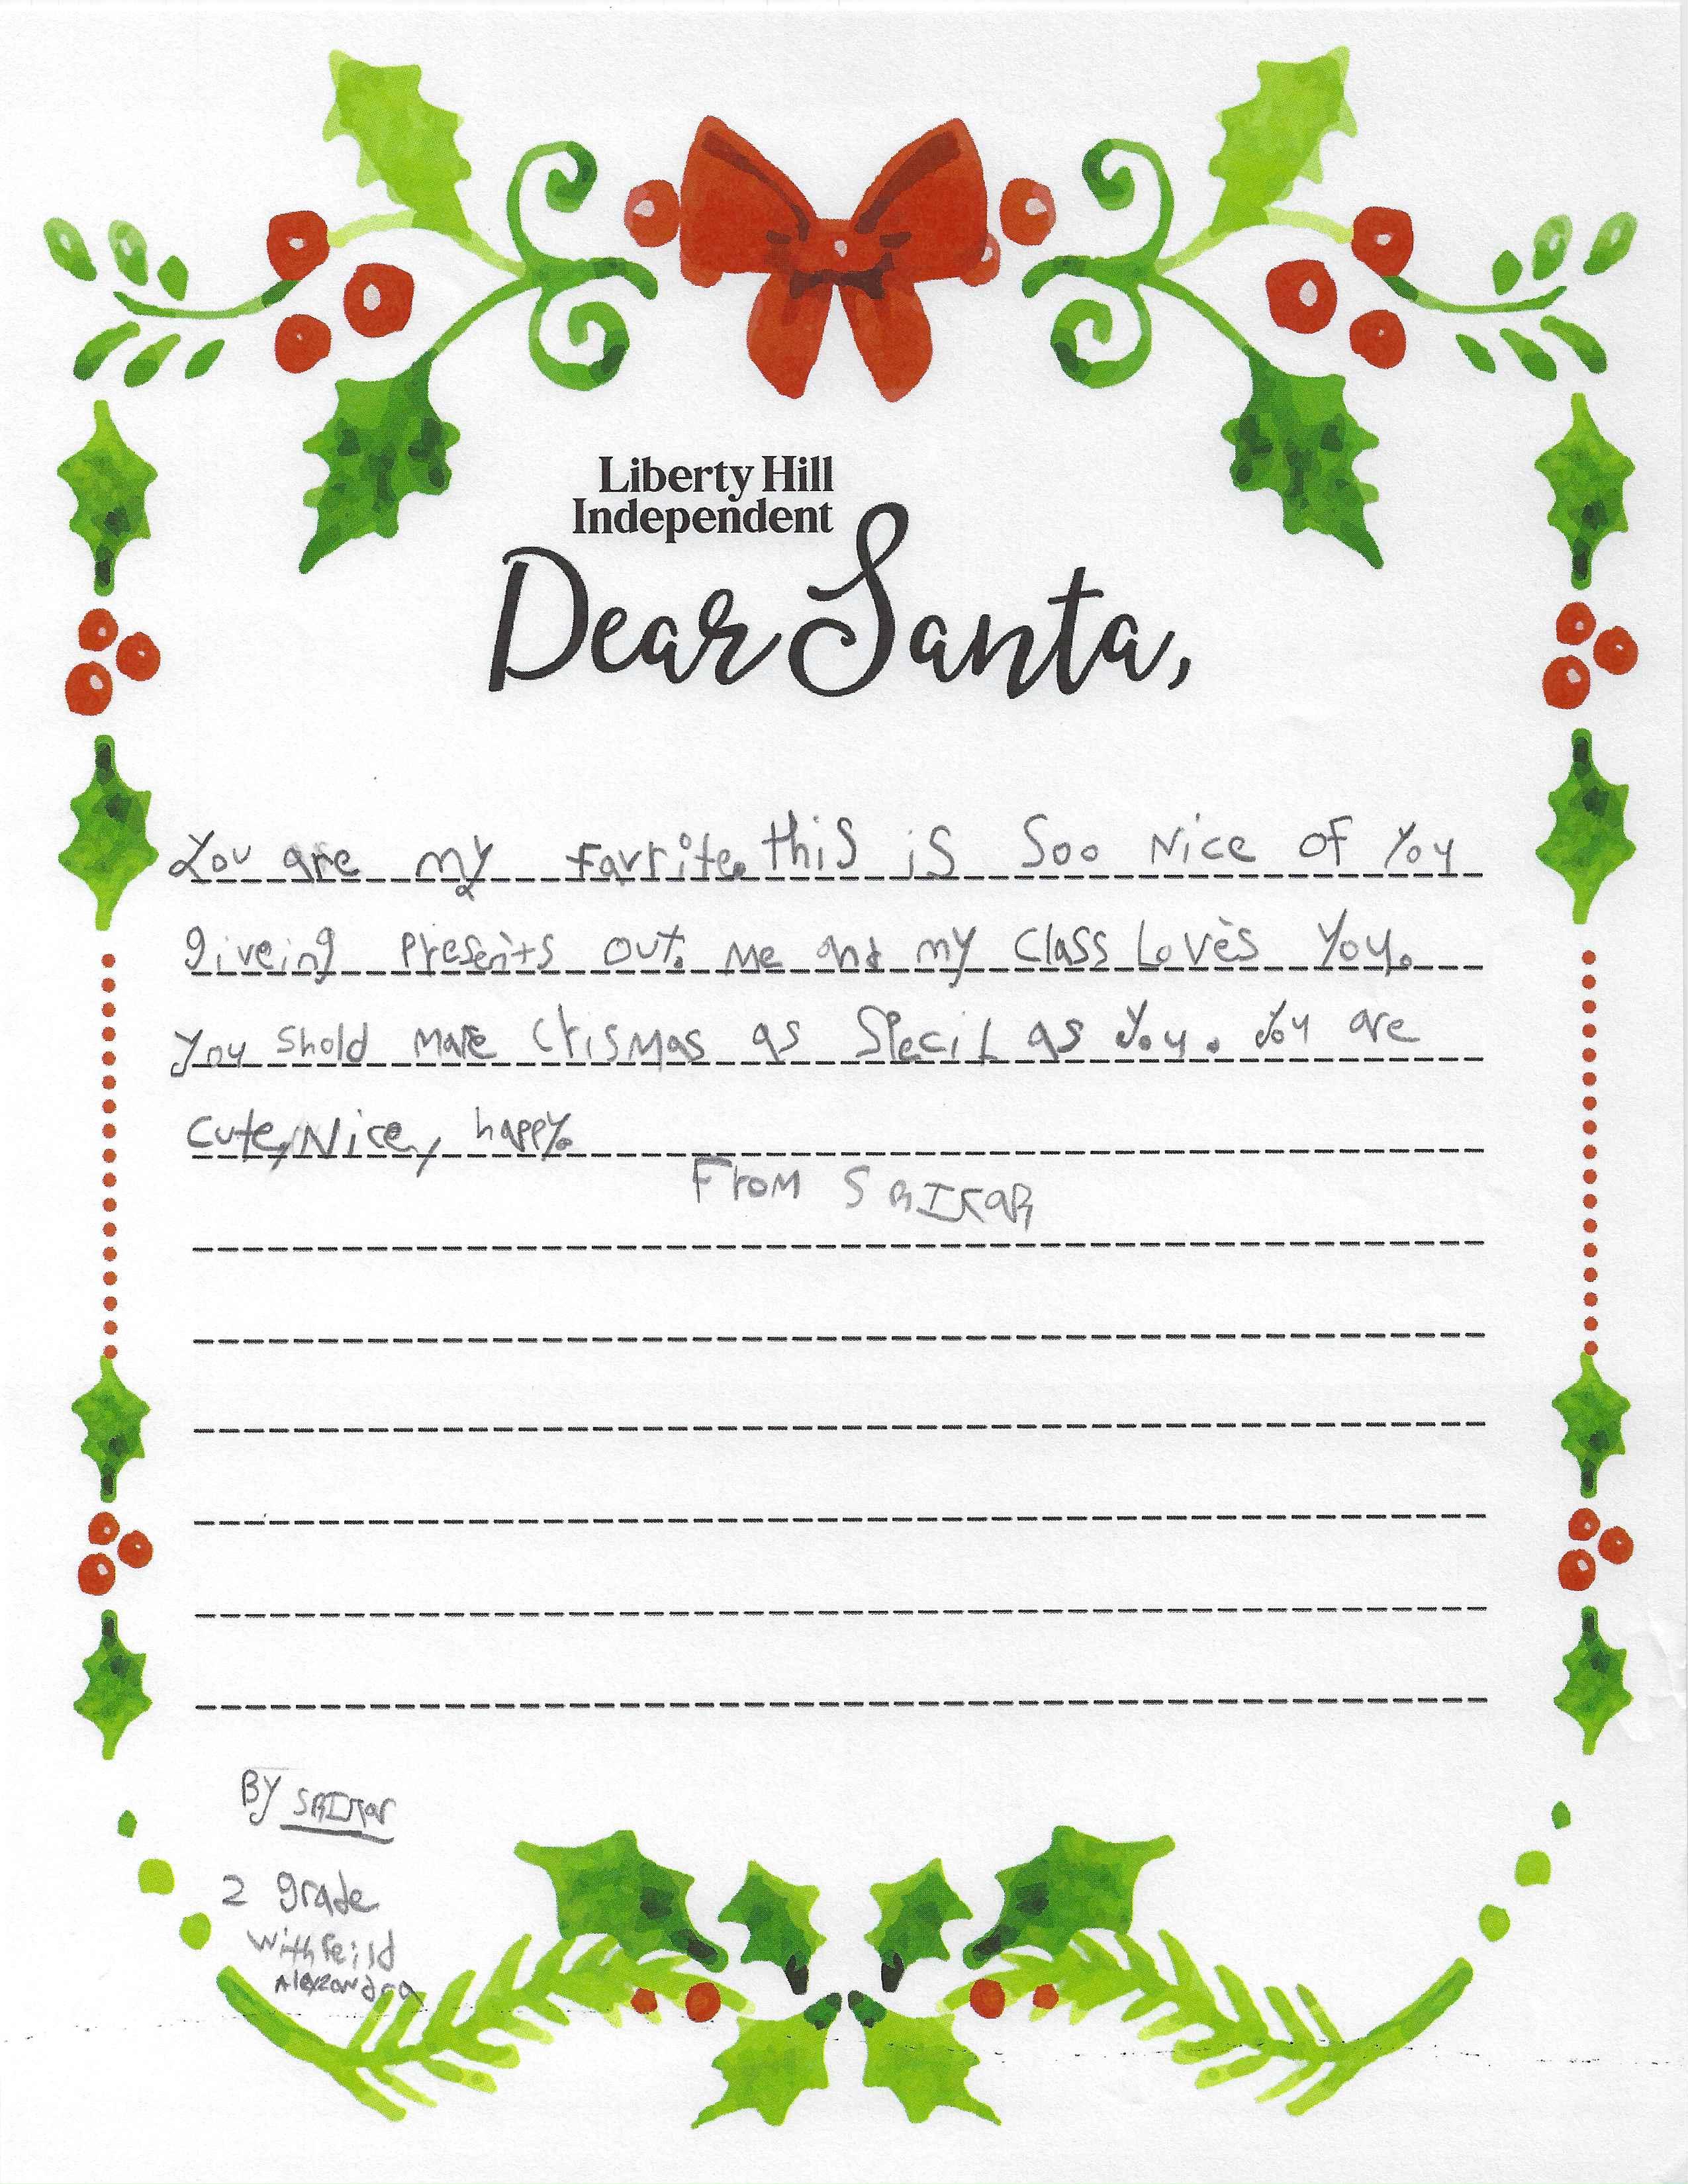 Liberty Hill
Independent
Dear Santa,
You are my favrite. this is Soo Nice of You
giveing Presents out. Me and my Class Loves You.
You Shold Make Crismas as Specil as You. You are
Cute, Nice, happy.
From
By
2 grade
Alexzandra